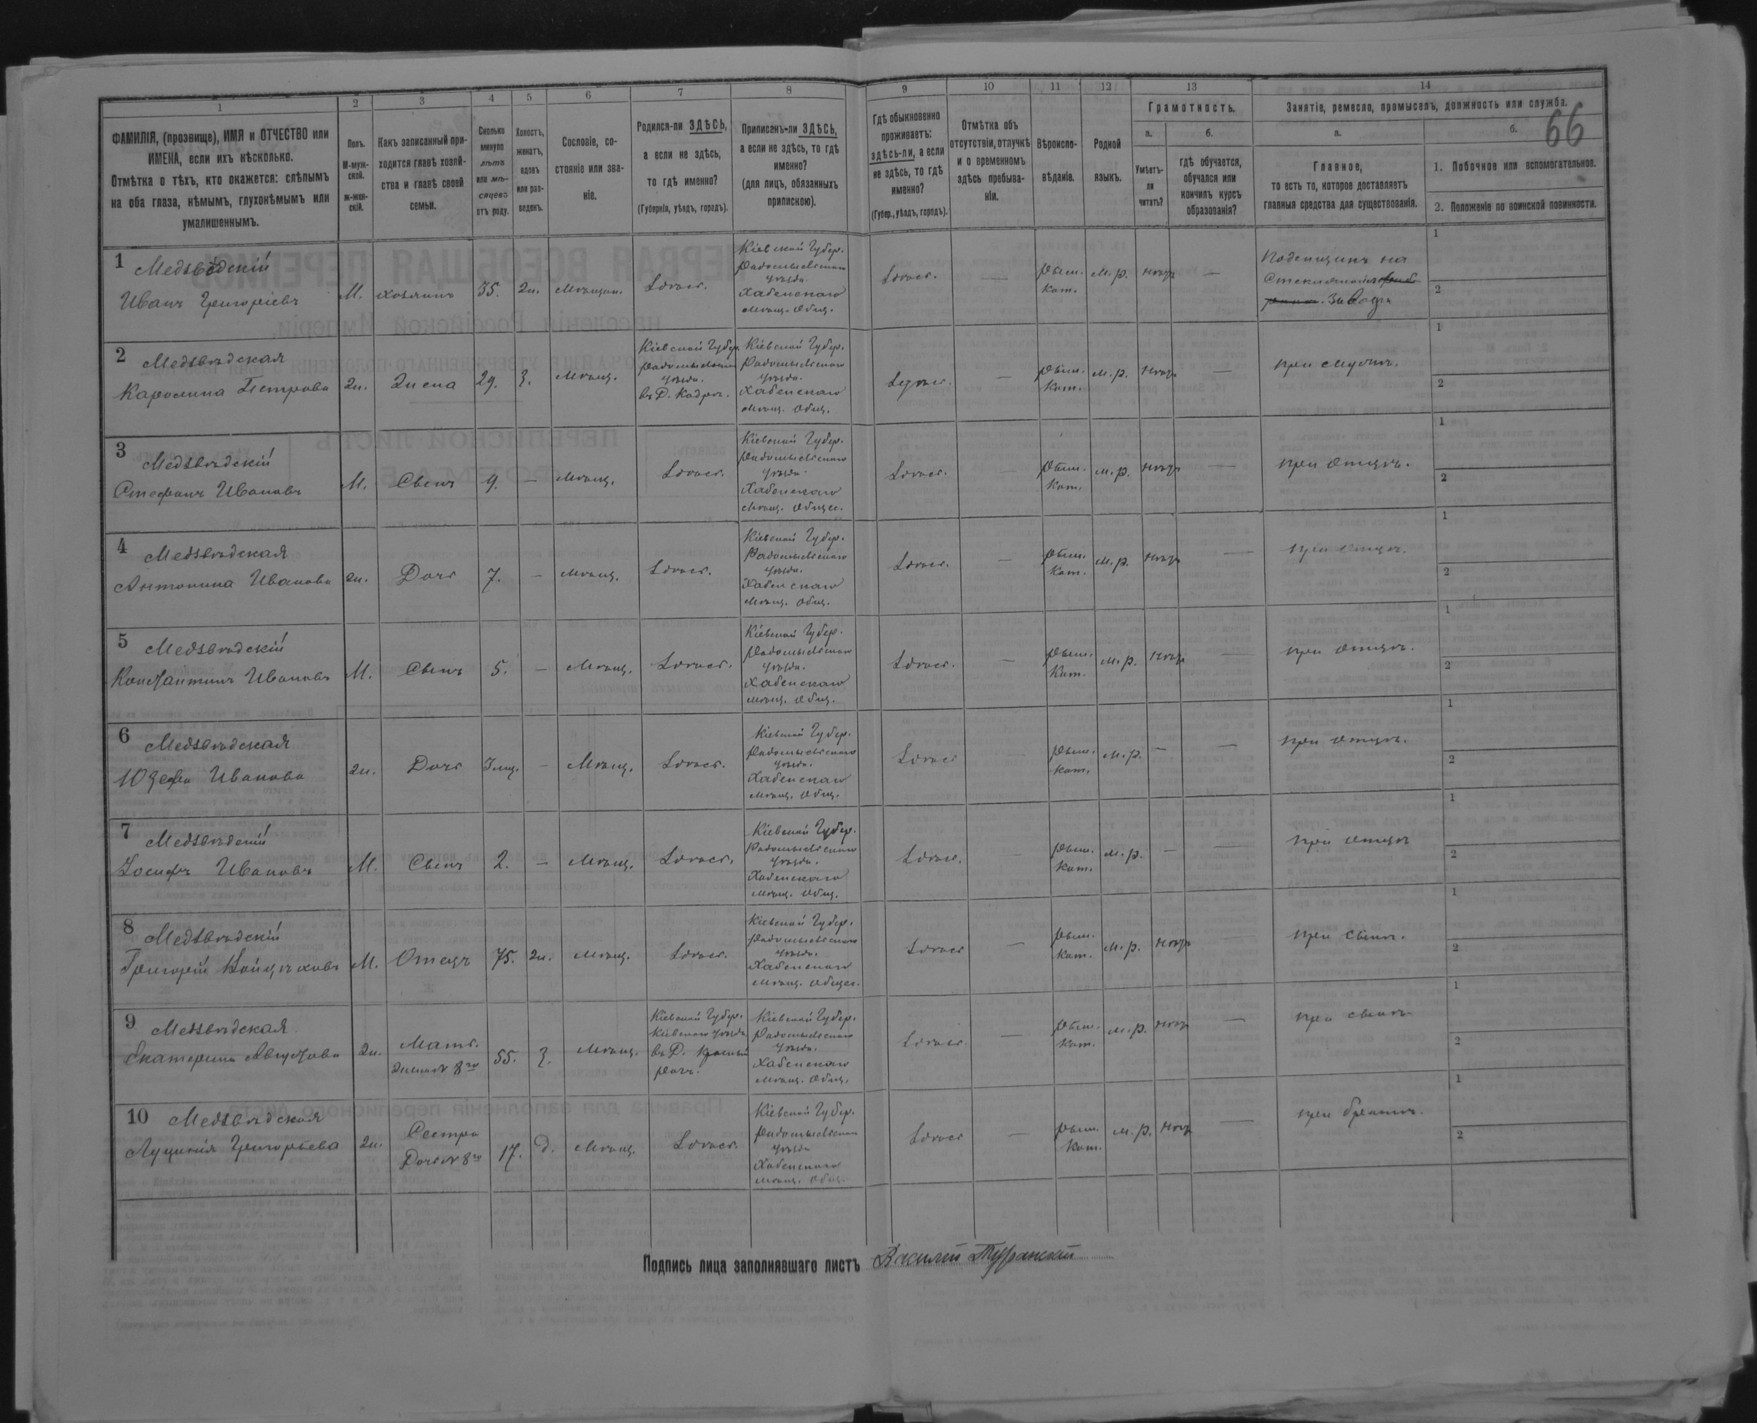 66
1 2 3 4 5 6 7 8 9 10 11 12 13 14
ФАМИЛІЯ, (прозвище), ИМЯ и ОТЧЕСТВО или
ИМЕНА, если ихъ нѣсколько.
Отмѣтка о тѣхъ, кто окажется: слѣпымъ
на оба глаза, нѣмымъ, глухонѣмымъ или
умалишеннымъ.
Полъ.
М-муж-
ской.
Ж-жен-
скій.
Какъ записанный при-
ходится главѣ хозяй-
ства и главѣ своей
семьи.
Сколько
минуло
лѣтъ
или мѣ-
сяцевъ
отъ роду.
Холостъ,
женатъ,
вдовъ
или раз-
веденъ.
Сословіе, со-
стояніе или зва-
ніе.
Родился-ли ЗДѢСЬ,
а если не здѣсь,
то гдѣ именно?
(Губернія, уѣздъ, городъ).
Приписанъ-ли ЗДѢСЬ,
а если не здѣсь, то гдѣ
именно?
(для лицъ, обязанныхъ
припискою).
Гдѣ обыкновенно
проживаетъ:
здѣсь-ли, а если
не здѣсь, то гдѣ
именно?
(Губер., уѣздъ, городъ).
Отмѣтка объ
отсутствіи, отлучкѣ
и о временномъ
здѣсь пребыва-
ніи.
Вѣроиспо-
вѣданіе.
Родной
языкъ.
Грамотность.
а.
Умѣетъ-
ли
читать?
б.
гдѣ обучается,
обучался или
кончилъ курсъ
образованія?
Занятіе, ремесло, промыселъ, должность или служба.
а.
Главное,
то есть то, которое доставляетъ
главныя средства для существованія.
б.
1. Побочное или вспомогательное.
2. Положеніе по воинской повинности.
1 Медвѣдскій
Иванъ Григоріевъ
М. хозяинъ 35. ж. Мѣщан. Здѣсь.
Кіевской Губер.
Радомысльскаго
Уѣзда.
Хабенскаго
Мѣщ. Общ.
Здѣсь. — Рим.
Кат. м. р. нѣтъ —
Поденщикъ на
Стеклянномъ
Заводѣ
1
2
2 Медвѣдская
Каролина Петрова
ж. Жена 29. З. Мѣщ.
Кіевской Губер.
Радомысльскаго
Уѣзда.
въ Д.
Кіевской Губер.
Радомысльскаго
Уѣзда.
Хабенскаго
Мѣщ. Общ.
Здѣсь. — Рим.
Кат. м. р. нѣтъ — при мужѣ.
1
2
3 Медвѣдскій
Стефанъ Ивановъ
М. Сынъ 9. — Мѣщ. Здѣсь.
Кіевской Губер.
Радомысльскаго
Уѣзда.
Хабенскаго
Мѣщ. Общес.
Здѣсь. — Рим.
Кат. м. р. нѣтъ — при отцѣ.
1
2
4 Медвѣдская
Антонина Иванова
ж. Дочь 7. — Мѣщ. Здѣсь.
Кіевской Губер.
Радомысльскаго
Уѣзда.
Хабенскаго
Мѣщ. Общ.
Здѣсь. — Рим.
Кат. м. р. нѣтъ — при отцѣ.
1
2
5 Медвѣдскій
Константинъ Ивановъ
М. Сынъ 5. — Мѣщ. Здѣсь.
Кіевской Губер.
Радомысльскаго
Уѣзда.
Хабенскаго
Мѣщ. Общ.
Здѣсь. — Рим.
Кат. м. р. нѣтъ — при отцѣ.
1
2
6 Медвѣдская
Юзефа Иванова
ж. Дочь 3 мѣц. — Мѣщ. Здѣсь.
Кіевской Губер.
Радомысльскаго
Уѣзда.
Хабенскаго
Мѣщ. Общ.
Здѣсь — Рим.
Кат. м. р. — — при отцѣ.
1
2
7 Медвѣдскій
Іосифъ Ивановъ
М. Сынъ 2. — Мѣщ. Здѣсь.
Кіевской Губер.
Радомысльскаго
Уѣзда.
Хабенскаго
Мѣщ. Общ.
Здѣсь. — Рим.
Кат. м. р. — — при отцѣ
1
2
8 Медвѣдскій
Григорій Войцѣховъ
М. Отецъ 75. ж. Мѣщ. Здѣсь.
Кіевской Губер.
Радомысльскаго
Уѣзда.
Хабенскаго
Мѣщ. Общес.
Здѣсь — Рим.
Кат. м. р. нѣтъ — при сынѣ.
1
2
9 Медвѣдская
Екатерина Августова
ж. Мать.
Жена № 8го 55. З. Мѣщ.
Кіевской Губер.
Кіевскаго Уѣзда
въ Д.
Кіевской Губер.
Радомысльскаго
Уѣзда.
Хабенскаго
Мѣщ. Общ.
Здѣсь — Рим.
Кат. м. р. нѣтъ — при сынѣ
1
2
10 Медвѣдская
Луцинія Григорьева
ж. Сестра
Дочь № 8го 17. д. Мѣщ. Здѣсь
Кіевской Губер.
Радомысльскаго
Уѣзда
Хабенскаго
Мѣщ. Общ.
Здѣсь — Рим.
Кат. м. р. нѣтъ — при братѣ.
1
2
Подпись лица заполнявшаго листъ Василій